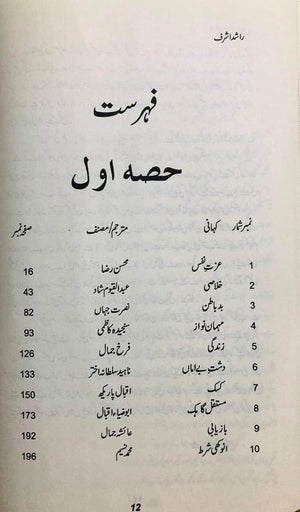 راشد اشرف
فہرست
حصہ اول
نمبر شمار کہانی مترجم/مصنف صفحہ نمبر
1 عزت نفس محسن رضا 16
2 خلاصی عبدالقیوم شاد 43
3 بد باطن نصرت جہاں 82
4 مہمان نواز سنجیدہ کاظمی 93
5 زندگی فرخ جمال 126
6 دشت بے اماں ناہید سلطانہ اختر 133
7 کسک اقبال پاریکھ 150
8 مستقل گاہک ابوضیاء اقبال 173
9 بازیابی عائشہ جمال 192
10 انوکھی شرط محمد نسیم 196
12